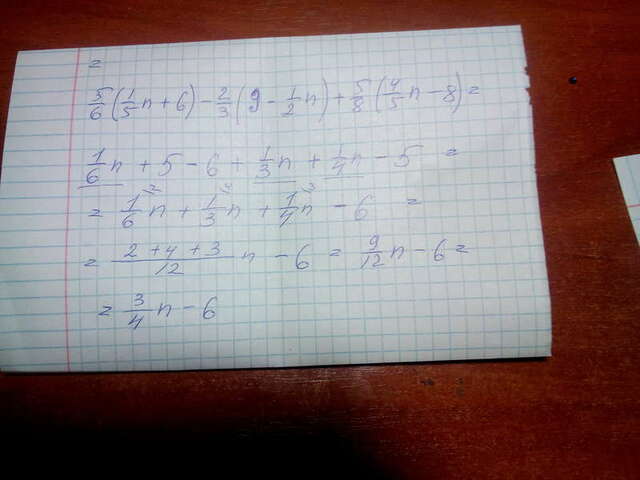 =
5/6 (1/5 n + 6) - 2/3 (9 - 1/2 n) + 5/8 (4/5 n - 8) =
1/6 n + 5 - 6 + 1/3 n + 1/4 n - 5 =
= 1/6 n + 1/3 n + 1/4 n - 6 =
= 2 + 4 + 3/12 n - 6 = 9/12 n - 6 =
= 3/4 n - 6